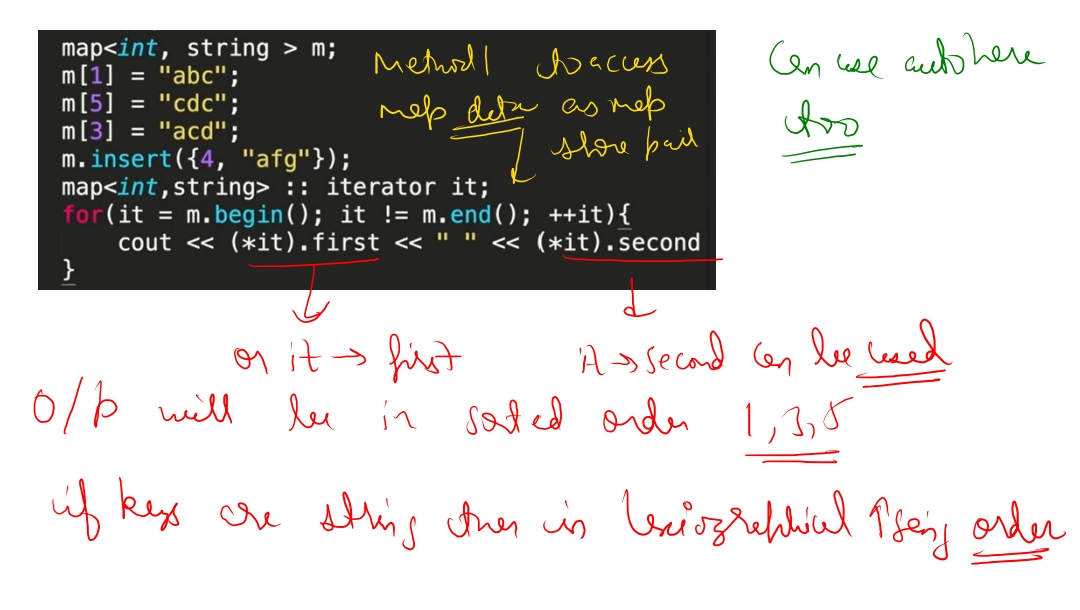 map<int, string > m;
m[1] = "abc";
m[5] = "cdc";
m[3] = "acd";
m.insert({4, "afg"});
map<int,string> :: iterator it;
for(it = m.begin(); it != m.end(); ++it){
cout << (*it).first << " " << (*it).second
}
Method 1 to access
map data as map
store pair
Can use auto here
too
or it → first
it → second can be used
O/P will be in sorted order 1,3,5
if keys are string then in lexiographical ↑sing order